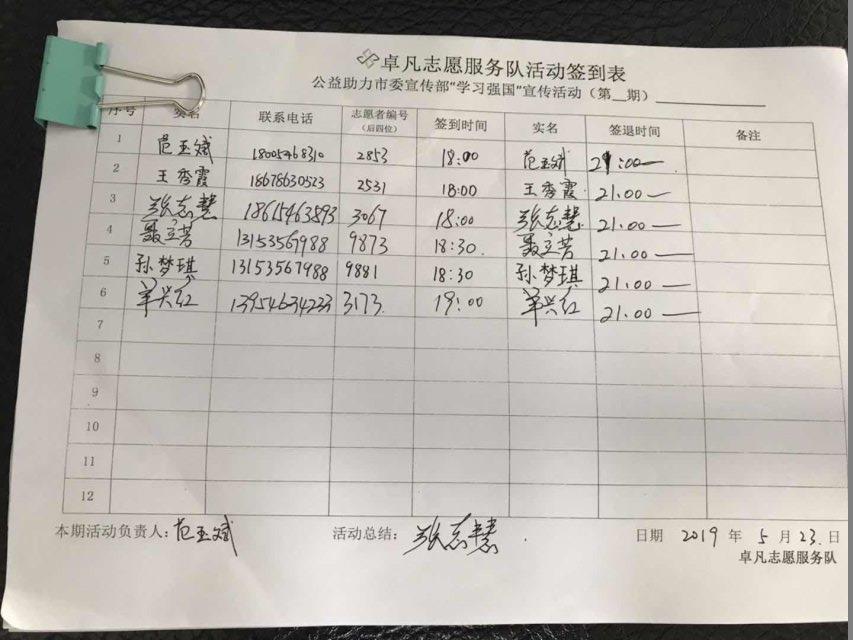 卓凡志愿服务队活动签到表
公益助力市委宣传部“学习强国”宣传活动（第__期）
序号 实名 联系电话 志愿者编号（后四位） 签到时间 实名 签退时间 备注
1 范玉斌 18005468310 2853 18:00 范玉斌 21:00
2 王秀霞 18678630523 2531 18:00 王秀霞 21.00
3 张志慧 18615463893 3067 18:00 张志慧 21.00
4 聂立芳 13153567988 9873 18:30 聂立芳 21.00
5 孙梦琪 13153567988 9881 18:30 孙梦琪 21.00
6 羊兴红 13954634233 3173 19:00 羊兴红 21.00
7
8
9
10
11
12
本期活动负责人：范玉斌 活动总结：张志慧 日期 2019 年 5 月 23 日
卓凡志愿服务队